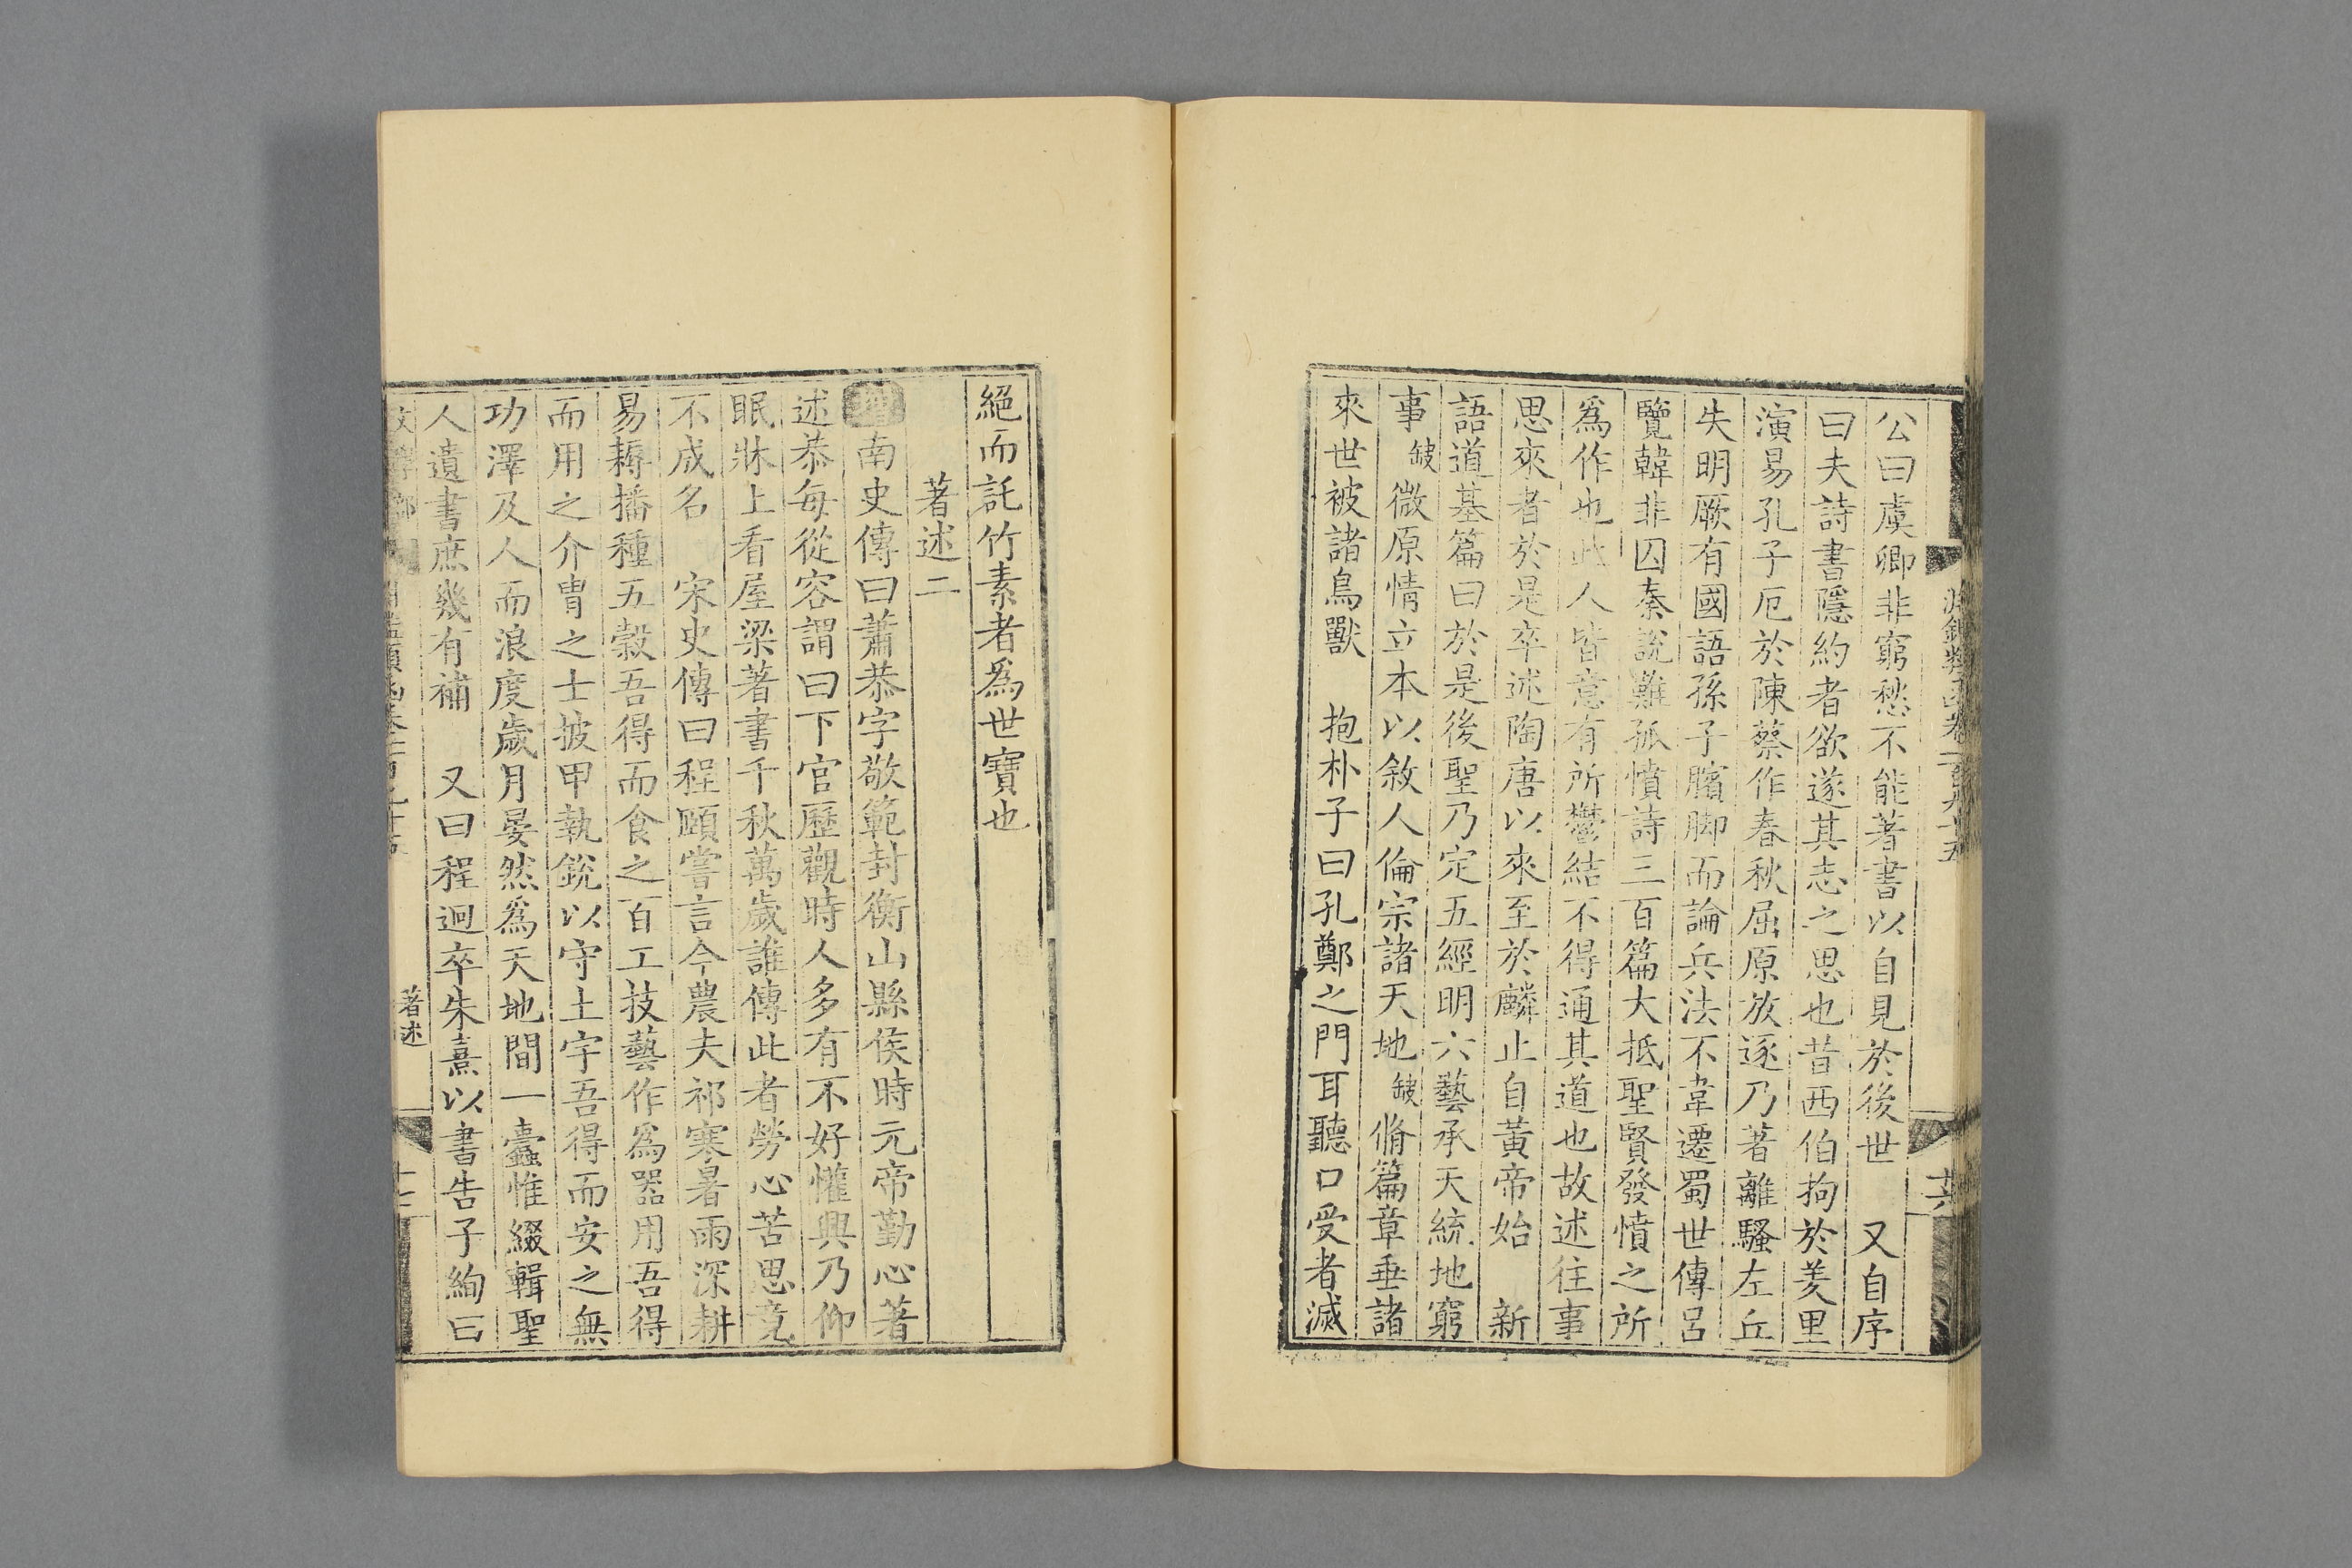 公曰虞卿非窮愁不能著書以自見於後世　又自序
曰夫詩書隱約者欲遂其志之思也昔西伯拘於羑里
演易孔子厄於陳蔡作春秋屈原放逐乃著離騷左丘
失明厥有國語孫子臏脚而論兵法不韋遷蜀世傳呂
覽韓非囚秦說難孤憤詩三百篇大抵聖賢發憤之所
爲作也此人皆意有所鬱結不得通其道也故述往事
思來者於是卒述陶唐以來至於麟止自黃帝始　新
語道基篇曰於是後聖乃定五經明六藝承天統地窮
事缺微原情立本以敘人倫宗諸天地缺脩篇章垂諸
來世被諸鳥獸　抱朴子曰孔鄭之門耳聽口受者滅
絕而託竹素者爲世寶也
著述二
南史傳曰蕭恭字敬範封衡山縣侯時元帝勤心著
述恭每從容謂曰下官歷觀時人多有不好懽興乃仰
眠牀上看屋梁著書千秋萬歲誰傳此者勞心苦思竟
不成名　宋史傳曰程頤嘗言今農夫祁寒暑雨深耕
易耨播種五穀吾得而食之百工技藝作爲器用吾得
而用之介冑之士披甲執銳以守土宇吾得而安之無
功澤及人而浪度歲月晏然爲天地間一蠹惟綴輯聖
人遺書庶幾有補　又曰程迥卒朱熹以書告子絢曰
著述